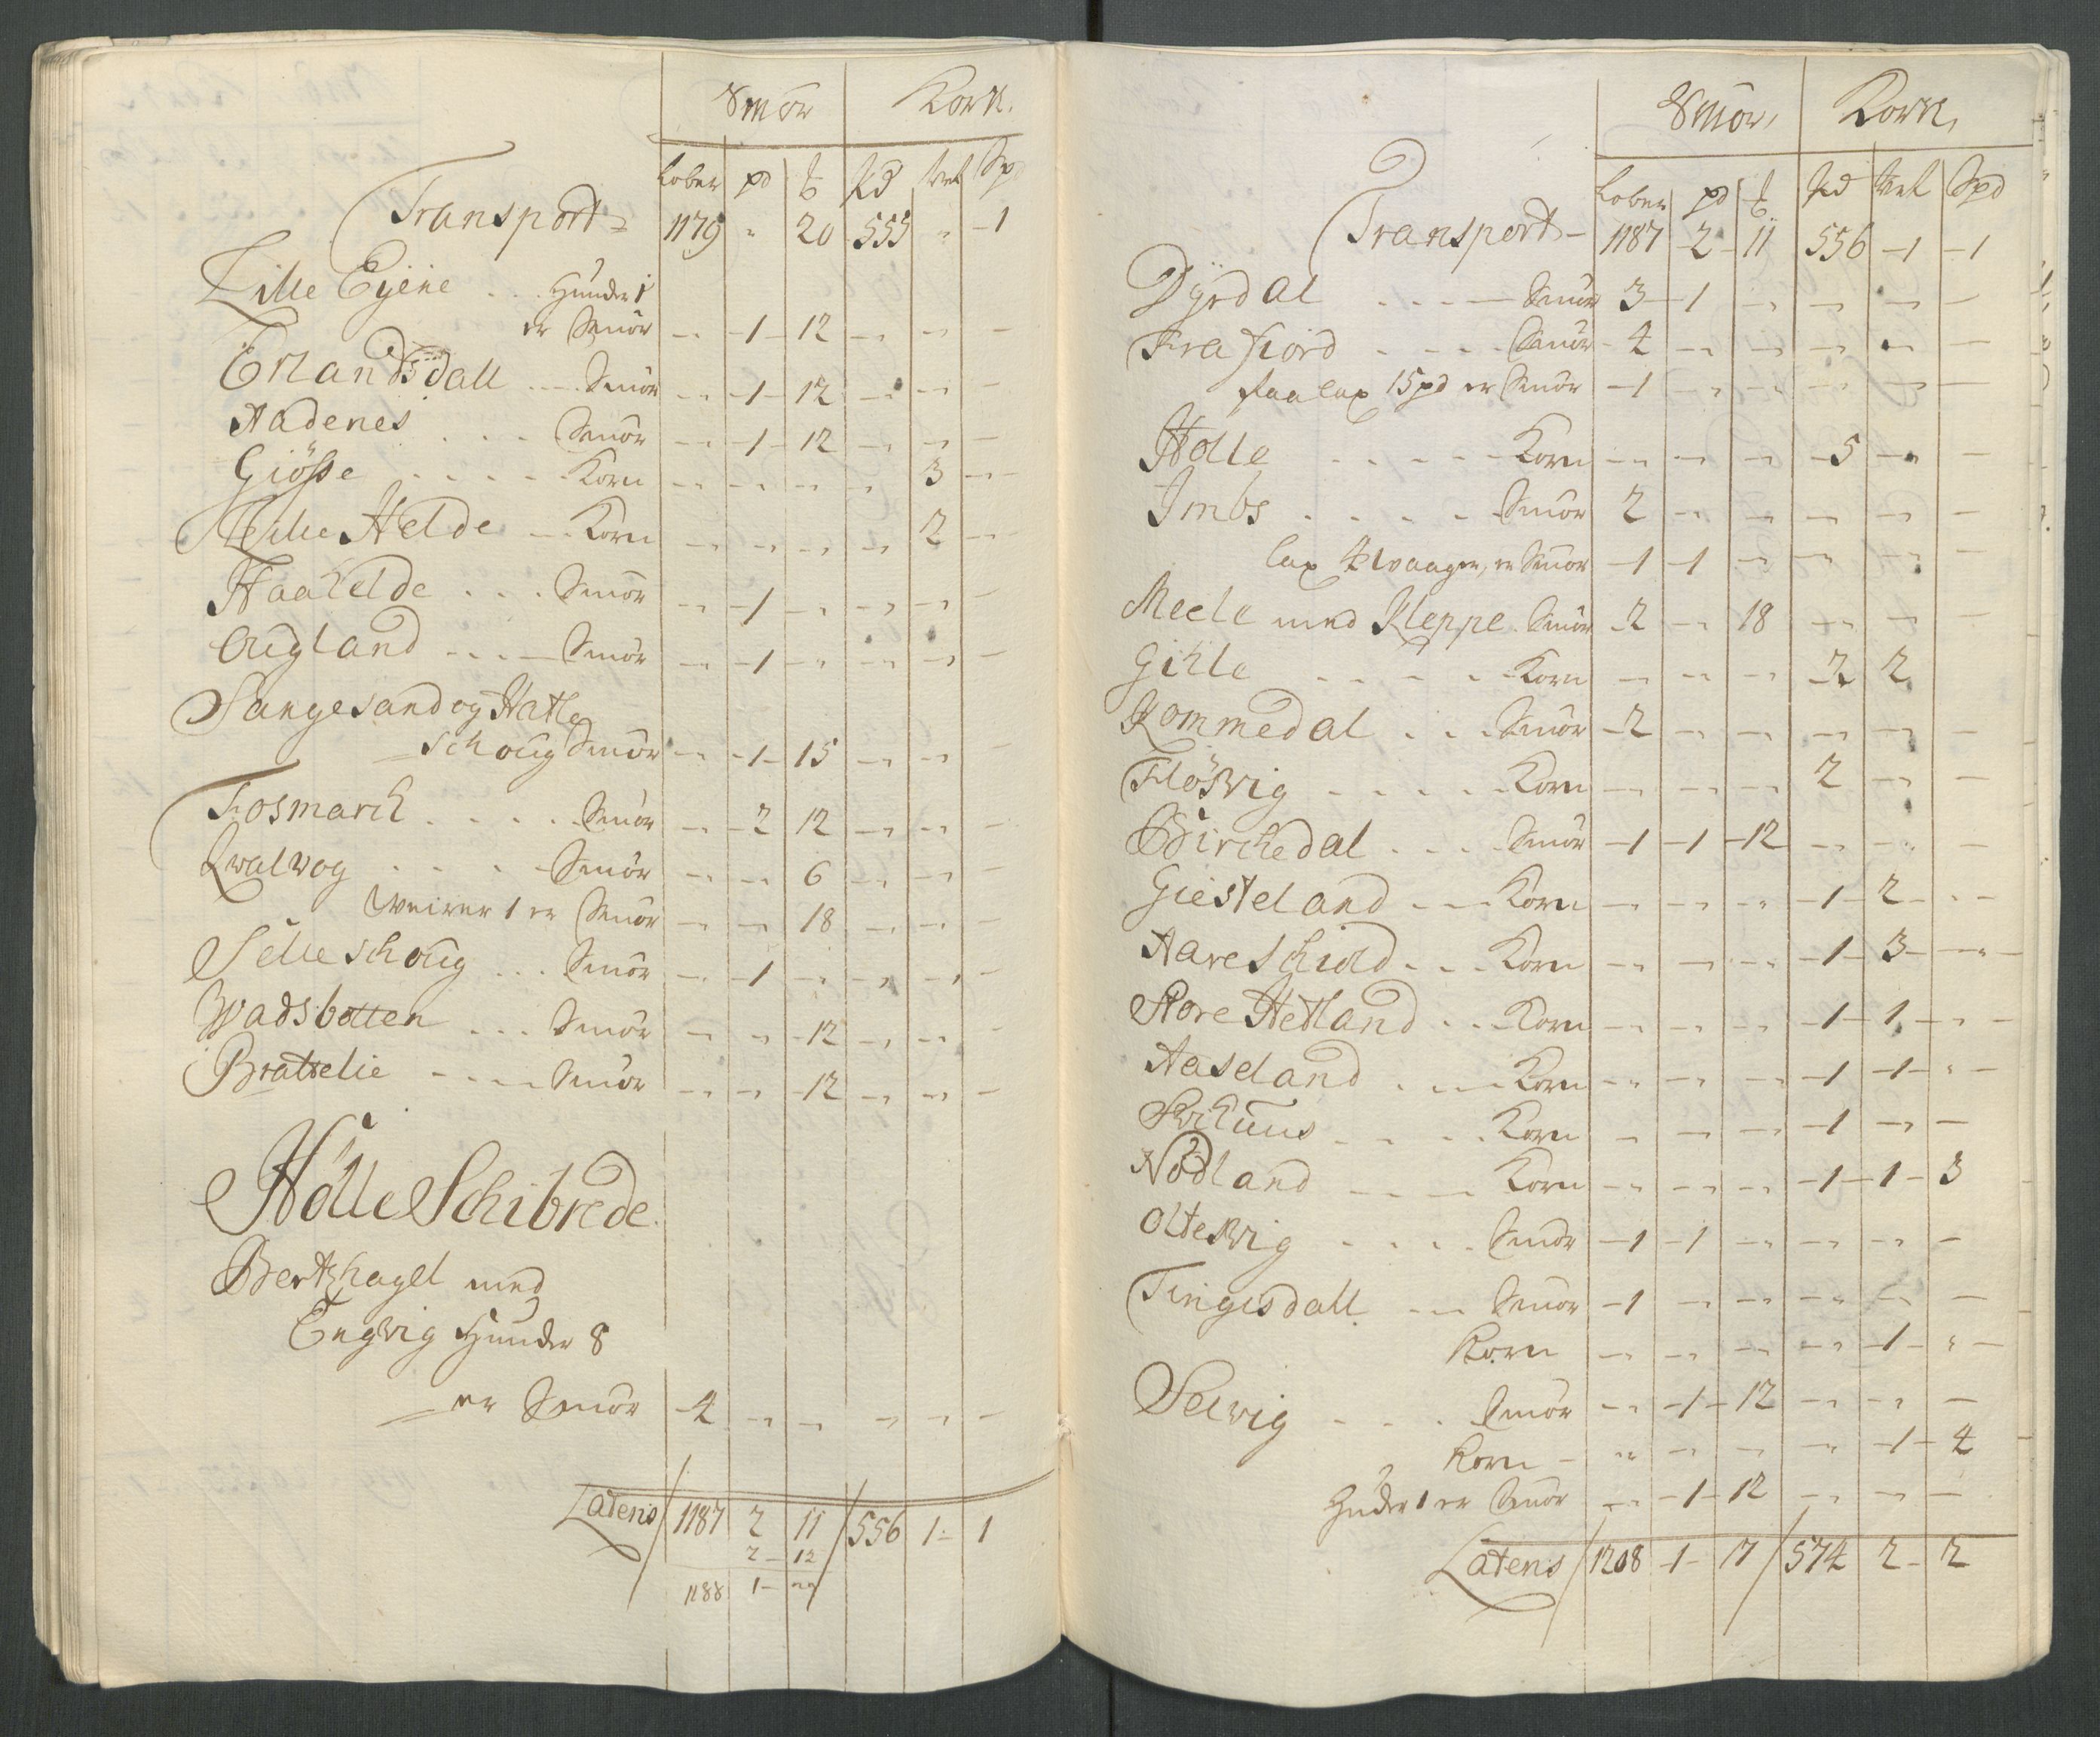 Smör Korn.
Lober pd ℔ Pd Vet Sp
Transport 1179 " 20 555 " - 1
Lille Eyene . . Hunder 1
er Smör - " - 1 - 12 - " - " -
Erlandsdall . . . Smör - " - 1 - 12 - " - " -
Aadenes . . . Smör - " - 1 - 12 - " - " -
Giösse . . . . . Korn - " - " - " - " 3 - "
Lille Helde - - Korn - " - " - " - " 2 - "
Haahelde . . . Smör - " - 1 - " - " - " -
Augland . . . Smör - " - 1 - " - " - " -
Sangesand og Hatle
schoug Smör - " - 1 - 15 - " - " -
Fosmarch . . . . Smör - " - 2 12 - " - " -
Qvalvog . . . . Smör - " - " 6 - " - " -
Weirer 1 er Smör - " - " 18 - " - " -
Selleschoug . . . Smör - " - 1 - " - " - " -
Wadsbotten . . . Smör - " - " - 12 - " - " -
Brattelie - - - Smör - " - " - 12 - " - " -
Hölle Schibrede.
Bertzhagel med
Engvig Hunder 8
er Smör - 4 - " - " - " - " -
Latens 1187 2 11 556 1 - 1
2 - 12
1188 1 - "
Smör, Korn,
Lober pd ℔ Pd Vet Spd
Transport - 1187 - 2 - 11 556 - 1 - 1
Dÿrdal . . . - Smör 3 - 1 - " - " - " -
Frafiord . . . . Smör - 4 - " - " - " - " -
faa lax 15 pd er Smör - 1 - " - " - " - " -
Holle . . . . . Korn - " - " - " - 5 - " -
Imbs . . . . Smör 2 - " - " - " - " -
lax 4 waager, er Smör - 1 - 1 - " - " - " -
Meele med Kleppe Smör - 2 - " 18 - " - " -
Gille . . . . . Korn - " - " - " - 2 2
Kommedal . . . Smör - 2 - " - " - " - " -
Flösvig . . . . . Korn - " - " - " 2 - " -
Birchedal . . . Smör - 1 - 1 - 12 - " - " -
Giesteland . . . Korn - " - " - " - 1 - 2 - " -
Aareschiold . . . Korn - " - " - " - 1 - 3 - " -
Store Hetland . . Korn - " - " - " - 1 - 1 - " -
Aaseland . . . Korn - " - " - " - 1 - 1 - " -
Nödland . . . Korn - " - " - " - 1 - 1 - 3
Oltesvig . . . . Smör - 1 - 1 - " - " - " -
Tingisdall . . . Smör - 1 - " - " - " - " -
Korn - " - " - " - " - 1 - " -
Selvig . . . Smör - " - 1 - 12 - " - " -
Korn - " - " - " - " - 1 - 4
Huder 1 er Smör - " - 1 - 12 - " - " -
Latens 1208 - 1 - 17 574 2 - 2